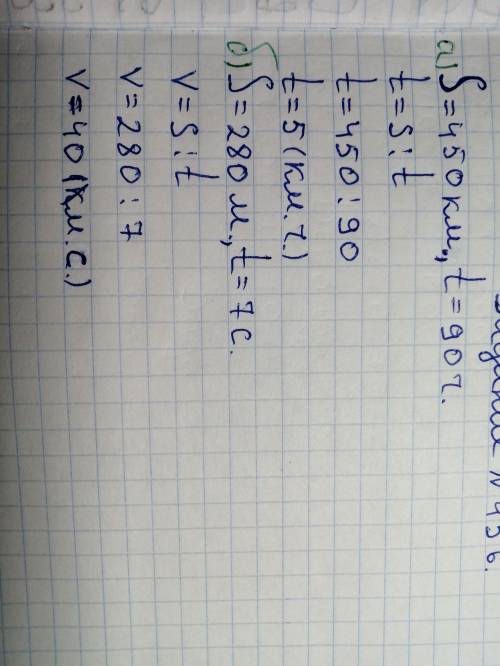 № 456.
а) S=450 км., t=90 ч.
t=S:t
t=450:90
t=5 (км.ч.)
б) S=280 м., t=7с.
v=S:t
v=280:7
v=40 (км.с.)